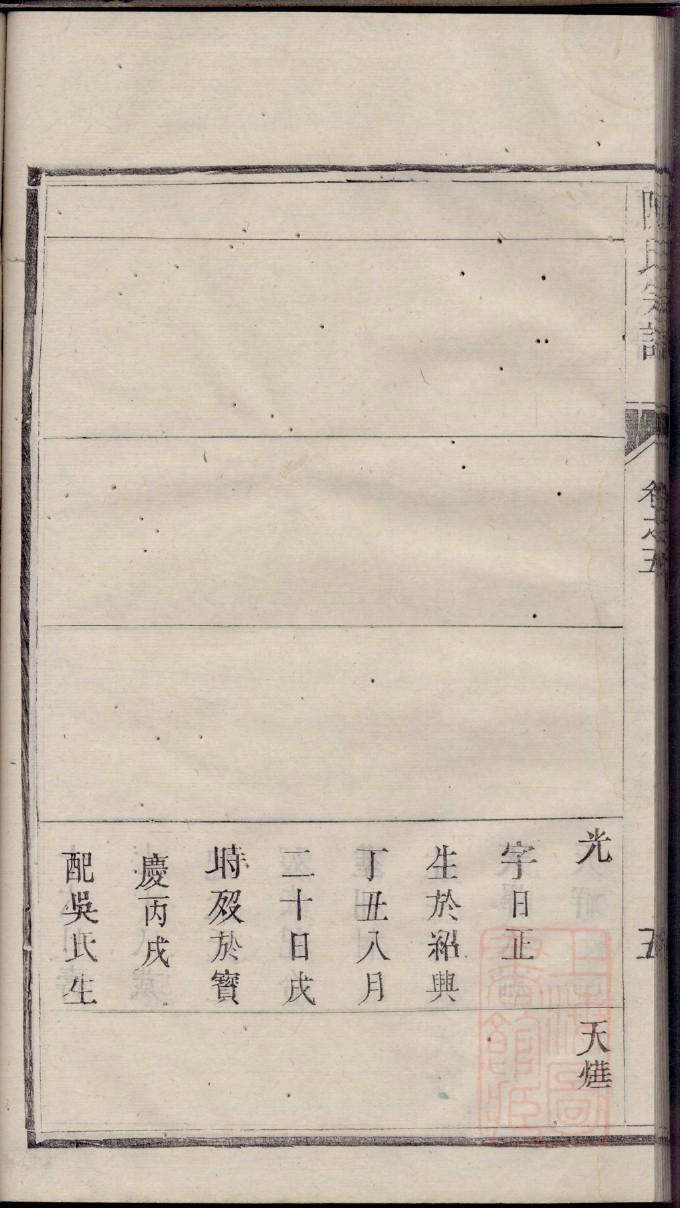 陳氏宗譜
卷之五
五
光
字日正
生於紹興
丁丑八月
二十日戌
時歿於寶
慶丙戌
配吳氏生
天燁